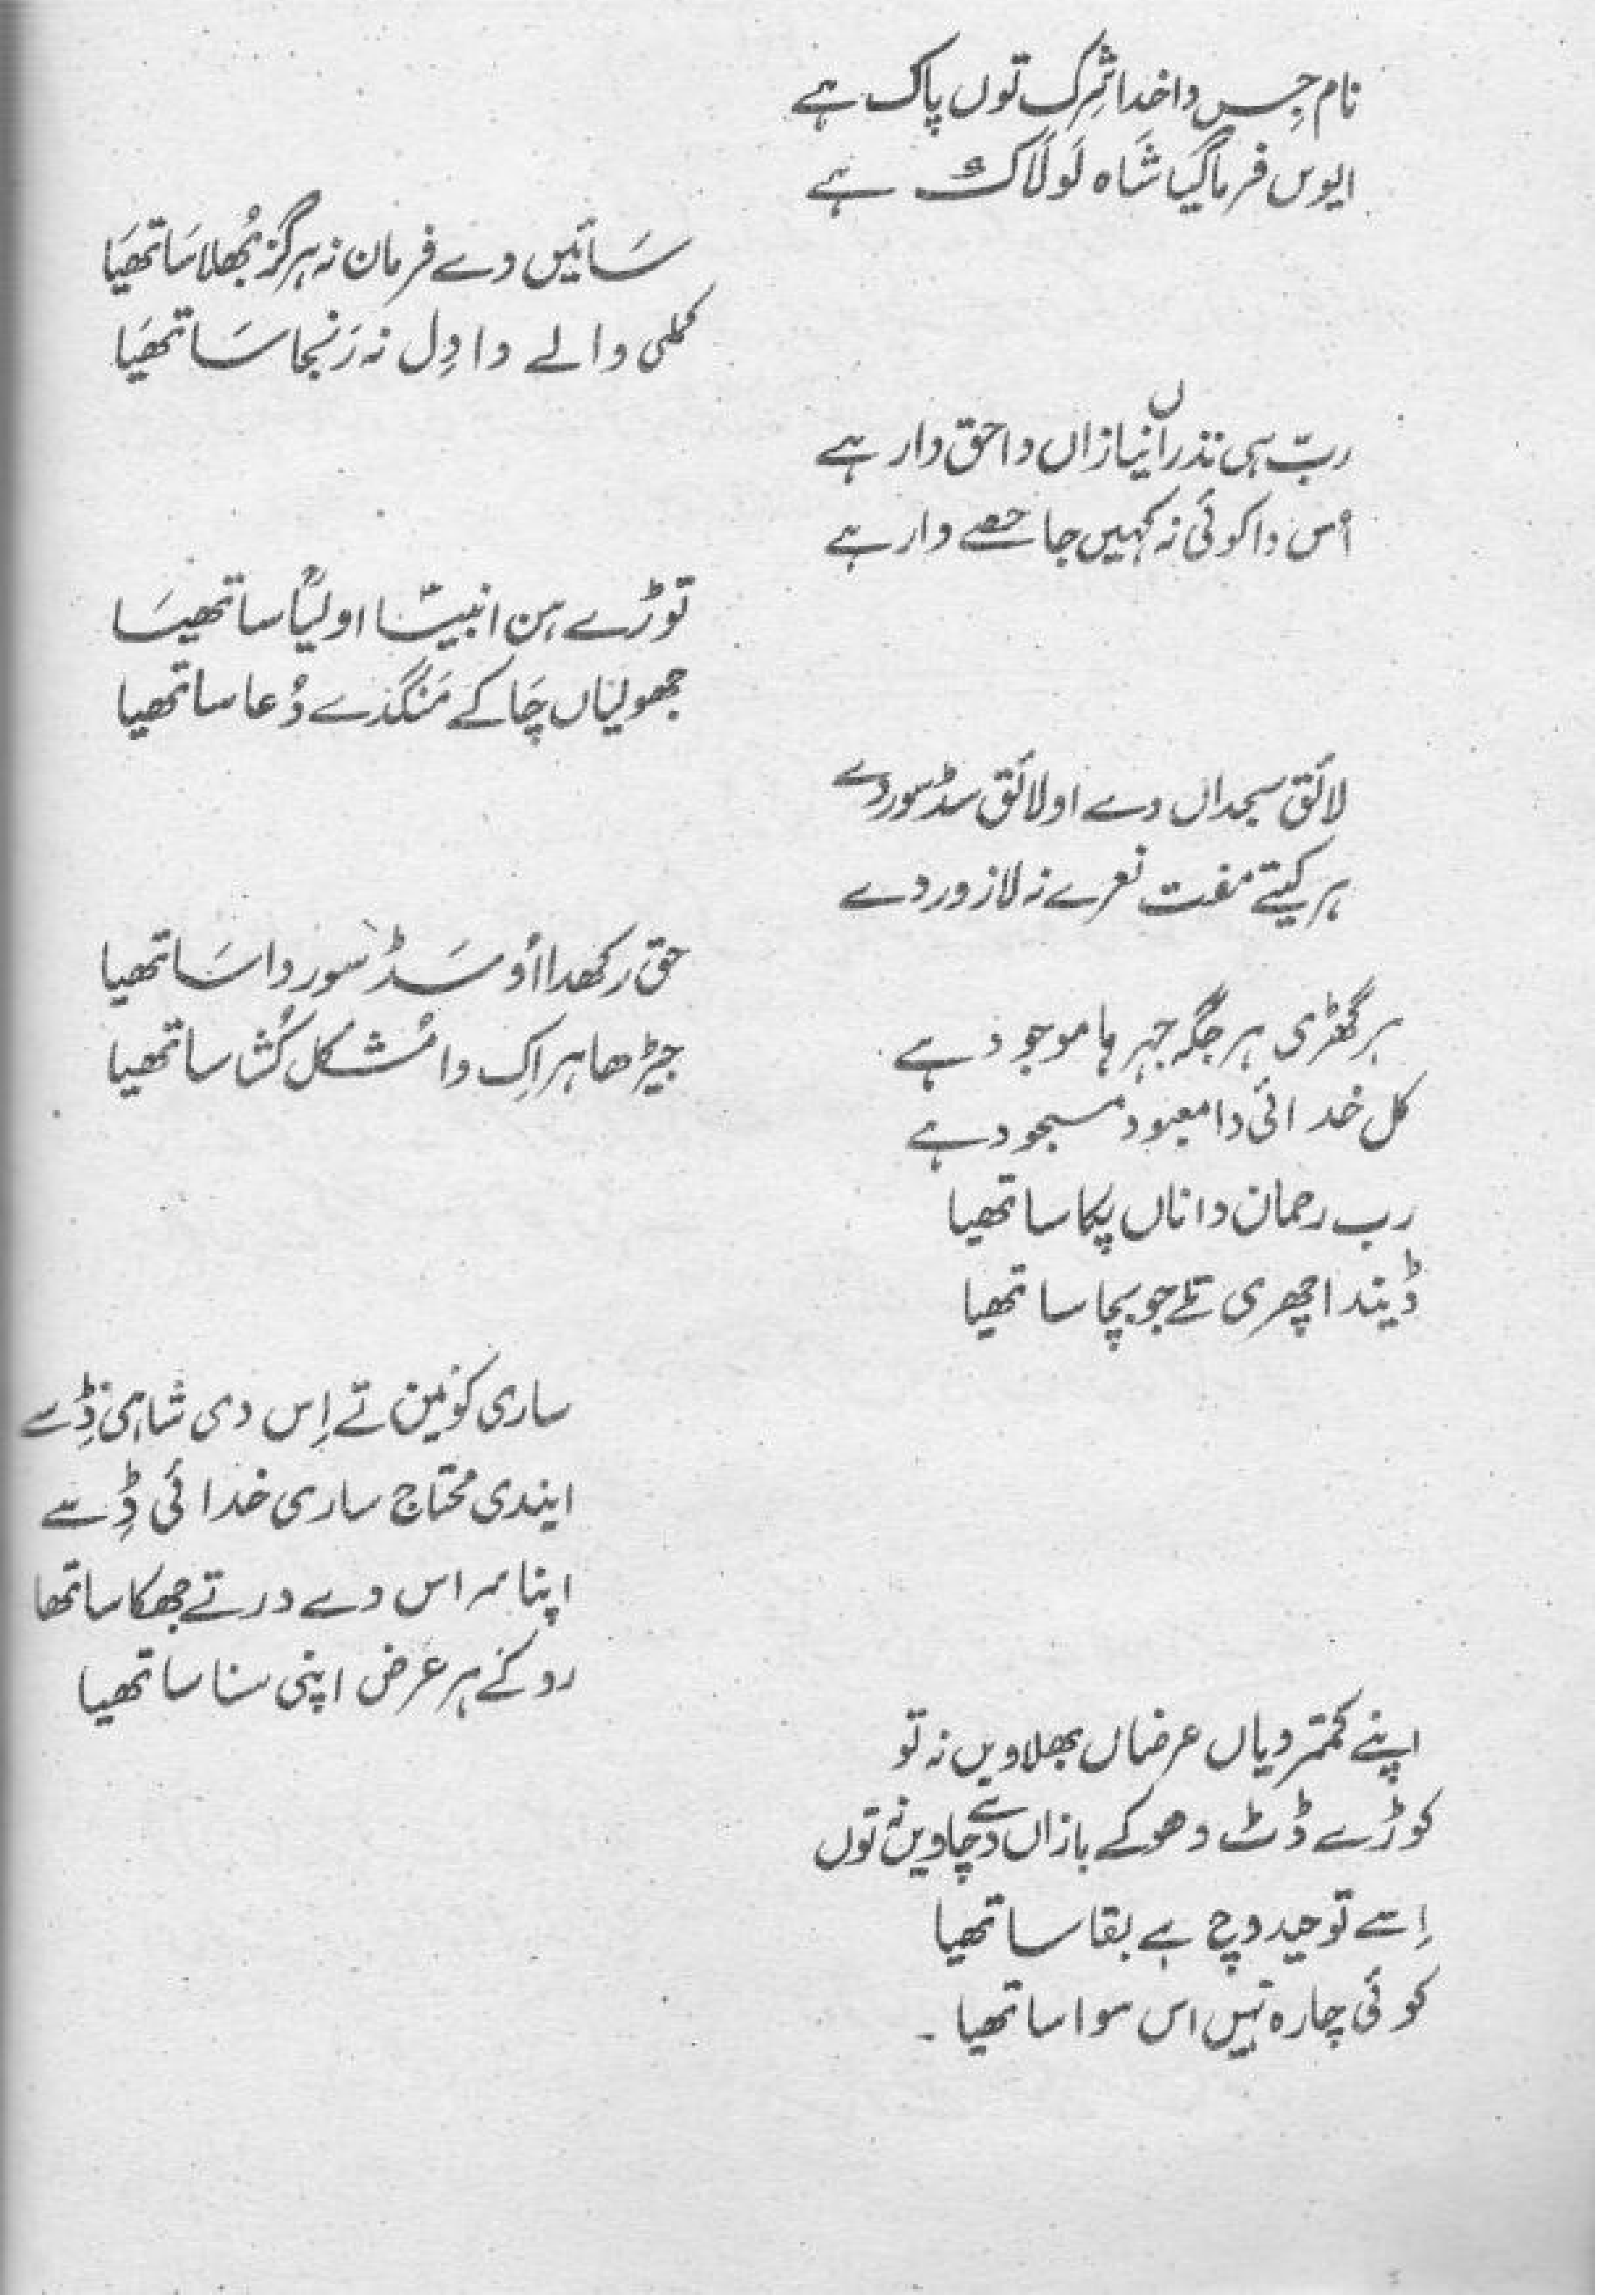 نام جِس دا خدا شِرک توں پاک ہے
ایویں فرما گیا شَاہ لَولَاکؐ ہے
سَائیں دے فرمان نہ ہرگز بُھلا سَاتھیَا
کملی والے دا دِل نہ رَنجا سَاتھیَا
ربّ ہی نذراں نیازاں دا حق دار ہے
اُس دا کوئی نہ کہیں جا حصے دار ہے
توڑے ہن انبیّا اولیّا ساتھیسَا
جھولیاں چَا کے مَنگدے دُعا ساتھیا
لائق سجداں دے او لائق سڈ سوردے
ہر کیتے مفت نعرے نہ لا زور دے
حق رکھدا اُو سَڈ سور دا سَاتھیا
جیڑھا ہر اِک دا مُشکل کُشا ساتھیا
ہر گھڑی ہر جگہ جہر ہا موجود ہے
کل خدائی دا معبود مسجود ہے
رب رحمان دا ناں پکا ساتھیا
ڈیندا چھری تلے جو بچا ساتھیا
ساری کونین تے اِس دی شاہی ڈِسے
ایندی محتاج ساری خدائی ڈِسے
اپنا سر اس دے در تے جھکا ساتھا
رو کے ہر عرض اپنی سنا ساتھیا
اپنے کمتر دیاں عرضاں بھلاویں نہ تو
کوڑے ڈٹ دھوکے بازاں دے چاویں نہ توں
اِسے توحید وچ ہے بقا ساتھیا
کوئی چارہ نہیں اس سوا ساتھیا ۔